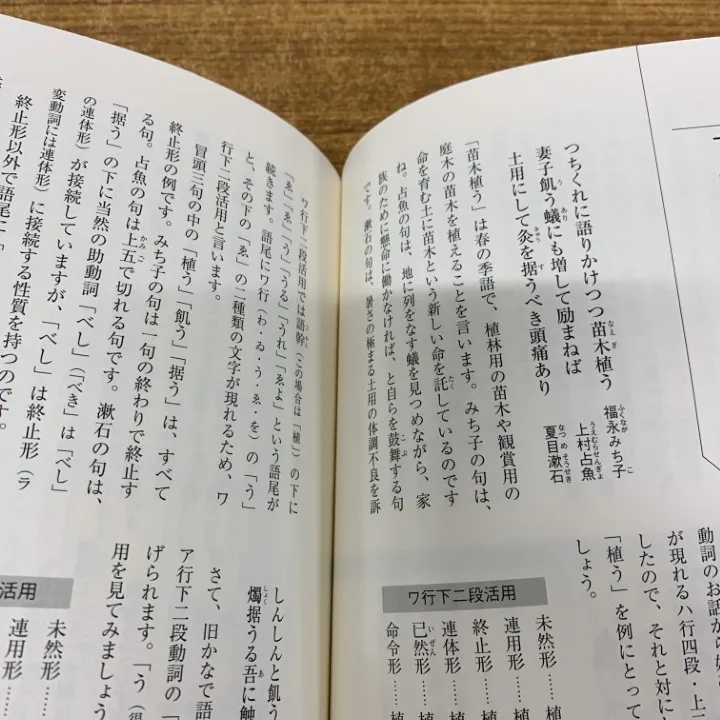 つちくれに語りかけつつ苗木植う
福永みち子
妻子飼う蟻にも増して励まねば
上村占魚
土用にして灸を据うべき頭痛あり
夏目漱石
「苗木植う」は春の季語で、植林用の苗木や観賞用の
庭木の苗木を植えることを言います。みち子の句は、
命を育む土に苗木という新しい命を託しているのです
ね。占魚の句は、地に列をなす蟻を見つめながら、家
族のために懸命に働かなければ、と自らを鼓舞する句
です。漱石の句は、暑さの極まる土用の体調不良を訴
動詞のお話から
が現れるハ行四段・上二
したので、それと対に
「植う」を例にとって
しょう。
ワ行下二段活用
未然形……植
連用形……植
終止形……植
連体形……植
已然形……植
命令形……植
ワ行下二段活用では語幹（この場合は「植」）の下に
「ゑ」「ゑ」「う」「うる」「うれ」「ゑよ」という語尾が
続きます。語尾にワ行（わ・ゐ・う・ゑ・を）の「う」
と、その下の「ゑ」の二種類の文字が現れるため、ワ
行下二段活用と言います。
冒頭三句の中の「植う」「飼う」「据う」は、すべて
終止形の例です。みち子の句は一句の終わりで終止す
る句。占魚の句は上五で切れる句です。漱石の句は、
「据う」の下に当然の助動詞「べし」（「べき」は「べし」
の連体形）が接続していますが、「べし」は終止形（ラ
変動詞には連体形）に接続する性質を持つのです。
終止形以外で語尾に「
しんしんと飢う
燭据うる吾に触
さて、旧かなで語
ア行下二段動詞の「
げられます。「う（得
用を見てみましょう
活用
未然形……
連用形……